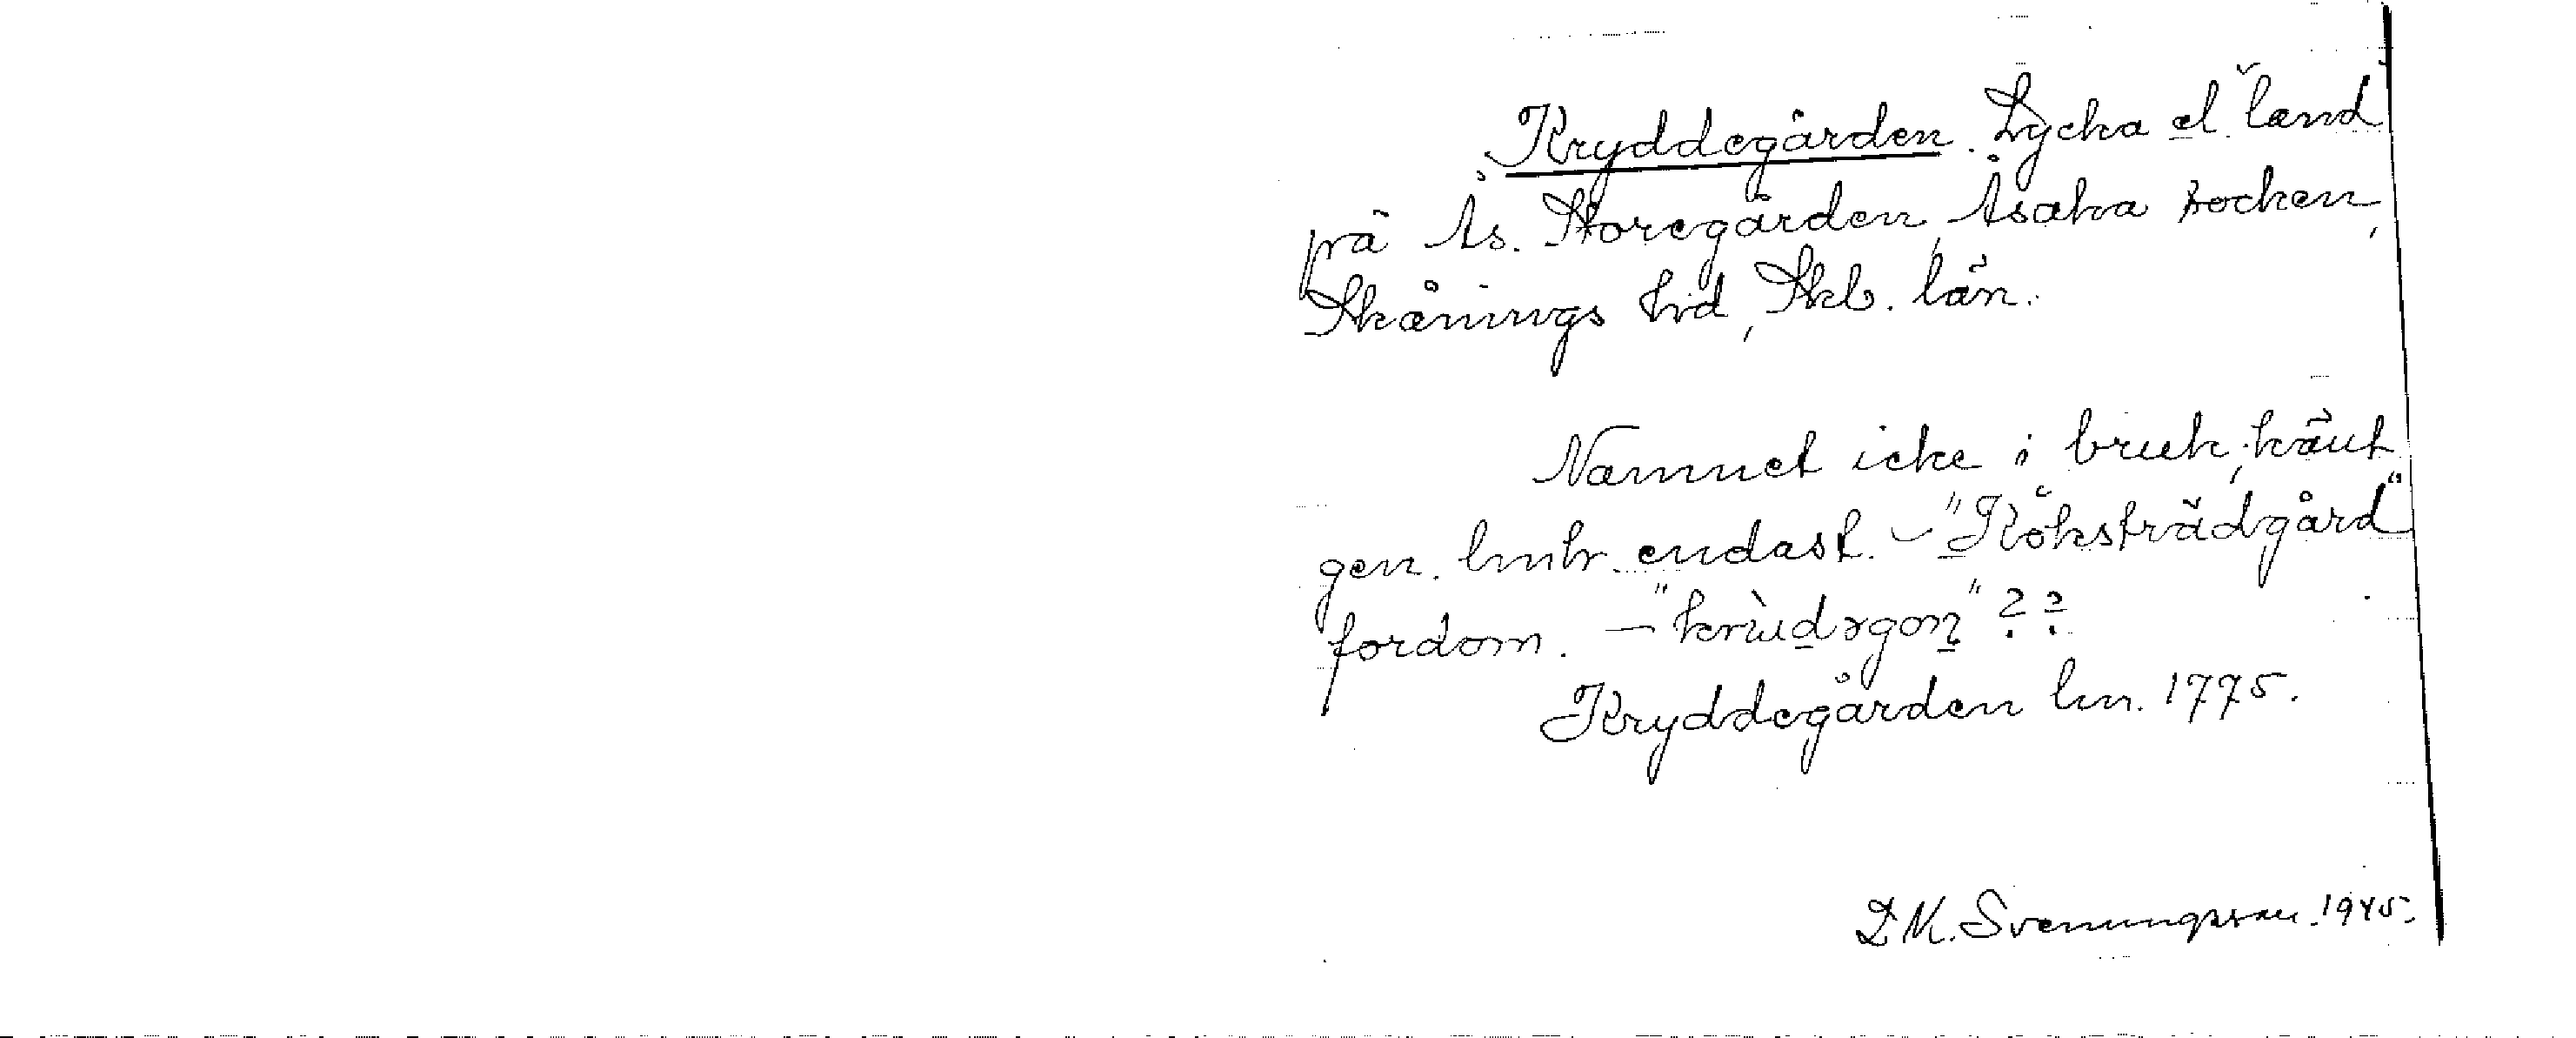 Kryddegården. Lycka el. land
på Ås. Storegården, Åsaka socken,
Skånings hd, Skb. län.
Namnet icke i bruk, känt
gen. lmtr. endast. - "Köksträdgård"
fordom. - "krùdəgoṉ" ??
Kryddegården lm. 1775.
D.M. Svenungsson. 1945.